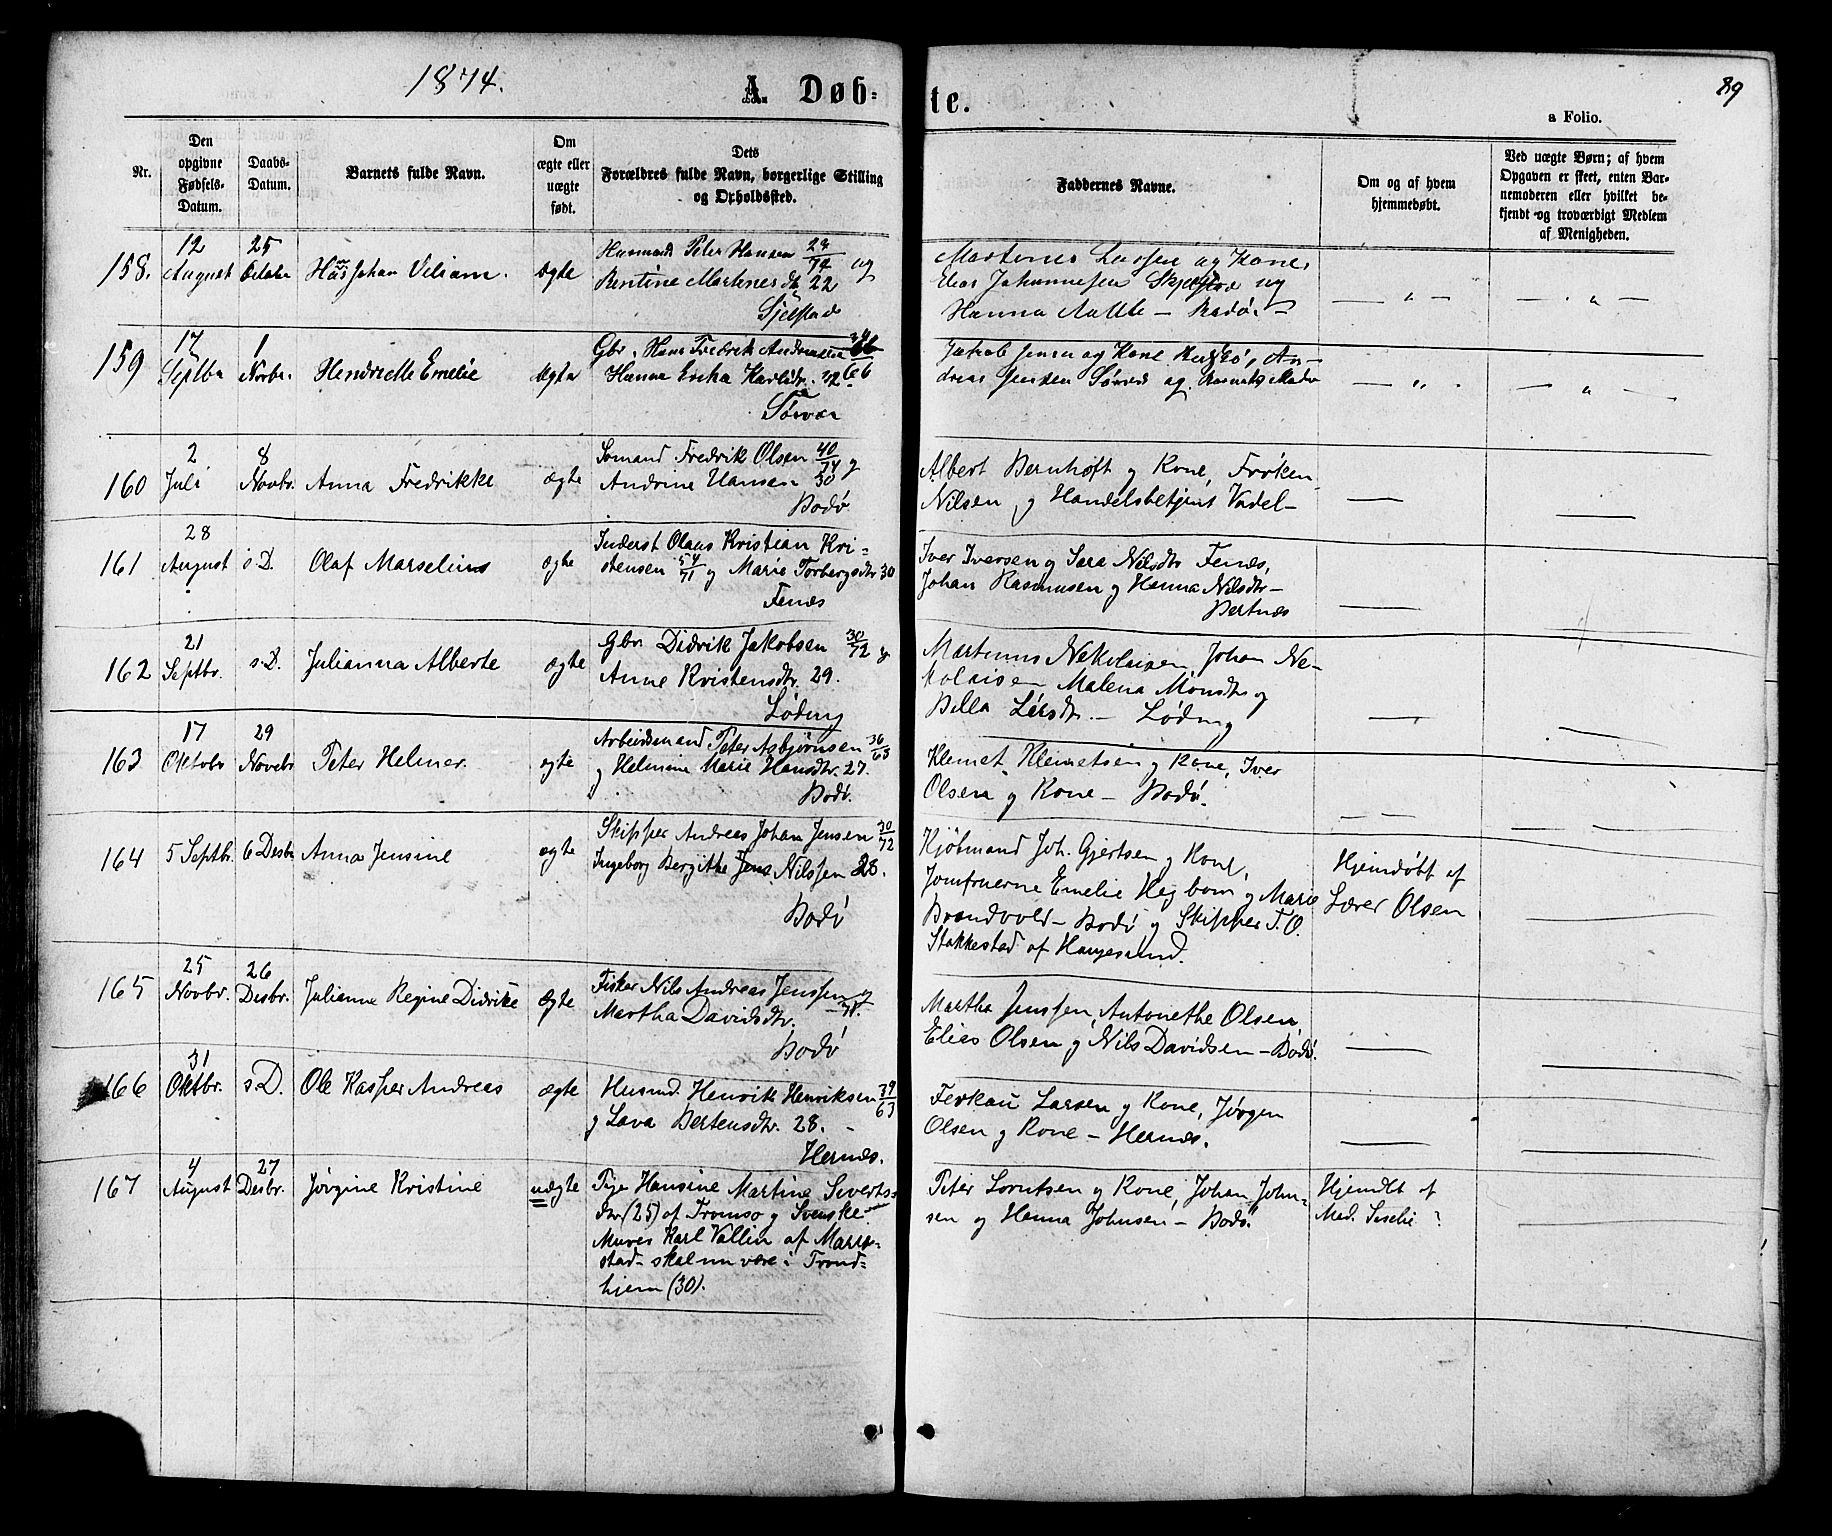 1874.
A. Døb-
te.
89
a Folio.
Nr.
Den
opgivne
Fødsels-
Datum.
Daabs-
Datum.
Barnets fulde Navn.
Om
ægte eller
uægte
født.
Dets
Forældres fulde Navn, borgerlige Stilling
og Opholdssted.
Faddernes Navne.
Om og af hvem
hjemmedøbt.
Ved uægte Børn; af hvem
Opgaven er skeet, enten Bar-
nemoderen eller hvilket be-
kjendt og troværdigt Medlem
af Menigheden.
158.
12
August
25
October
Hans Johan Viliam.
Ægte
Husmand Peter Hansen 28/74 og
Bentine Martinesdtr 22
Sjelstad
og Kone,
Elias Johannesen Skjelstad og
Hanna Bodø
159
17
Septbr
1
Novbr.
Hendriette Emelie
Ægte
Gbr. Hans Fredrik Andreassen
Hanna Erika
Jakob Jensen og Kone
dreas Jensen og
160
2
Juli
8
Novbr.
Anna Fredrikke
ægte
Sømand Fredrik Olsen 40/74 g
Andrine Hansen 30
Bodø
Albert Bernhoft g Kone, Frøken
Nilsen g Handelsbetjent Vadel
161
28
August
s. D.
Olaf Marselius
ægte
Inderst Olaus Kristian Kri-
stensen 54/71 g Marie Torbergsdtr 30
Fenæs
Iver Iversen g Sara Nilsdtr Fenæs,
Johan Rasmusen g Hanna Nilsdtr
Bertnæs
162
21
Septbr.
s. D.
Julianna Alberte
ægte
Gbr. Didrik Jakobsen 30/72 g
Anne Kristensdtr. 29.
Løding
Martinus Nekolaisen, Johan Ne-
kolaisen Malena Monsdtr g
Løding
163
17
Oktobr
29
Novebr
Peter Helmer.
ægte
Arbeidsmand Peter Asbjørnsen 36/63
g Helmine Marie Hansdtr. 27.
Bodø.
Klemet Klemetsen g Kone, Iver
Olsen g Kone - Bodø.
164
5 Septbr.
6 Desbr
Anna Jensine
ægte
Skipper Andreas Johan Jensen 30/72
Ingeborg Bergitte Jens. Nilssen 28.
Bodø
Kjøbmand Joh. Gjertsen g Kone,
Jomfruerne Emelie Hegbom g Marie
Brandvold - Bodø g Skipper T. O.
Stakkestad af Haugesund.
Hjemdøbt af
Lærer Olsen
165
25
Novbr.
26
Desbr.
Julianne Regine Didrike
Ægte
Fisker Nils Andreas Jenssen g
Martha Davidsdtr. 31.
Bodø
Martha Jenssen, Antonethe Olsen,
Elias Olsen g Nils Davidsen - Bodø.
166
31
Oktbr.
s. D.
Ole Kasper Andreas
ægte
Husmd. Henrik Henriksen 39/63
g Lava Bertensdtr. 28.
Hernæs.
Larsen g Kone, Jørgen
Olsen g Kone - Hernæs.
167
4
August
27
Desbr.
Jørgine Kristine
uægte
Pige Hansine Martine Siverts-
dtr (25) af Tromsø g Svenske
Murer Karl Vallin af Marie-
stad - skal nu være i Trond-
hjem (30).
Peter Lorntsen g Kone, Johan John-
sen g Hanna Johnsen - Bodø.
Hjemdbt af
Mad.